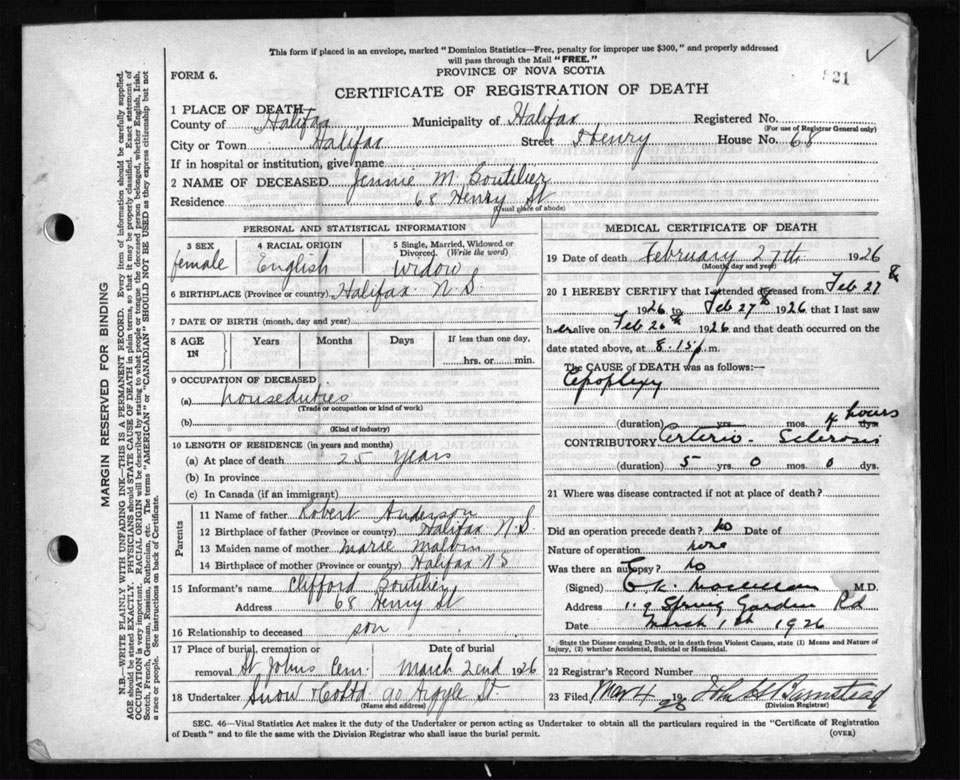 This form if placed in an envelope, marked "Dominion Statistics—Free, penalty for improper use $300," and properly addressed
will pass through the Mail "FREE."
FORM 6.
PROVINCE OF NOVA SCOTIA
821
CERTIFICATE OF REGISTRATION OF DEATH
1 PLACE OF DEATH
County of Halifax Municipality of Halifax Registered No.
(For use of Registrar General only)
City or Town Halifax Street Henry House No. 68
If in hospital or institution, give name
2 NAME OF DECEASED Jennie M. Boutilier
Residence 68 Henry St
(Usual place of abode)
PERSONAL AND STATISTICAL INFORMATION
3 SEX 4 RACIAL ORIGIN 5 Single, Married, Widowed or
Divorced. (Write the word)
female English Widow
6 BIRTHPLACE (Province or country) Halifax N.S.
7 DATE OF BIRTH (month, day and year)
8 AGE IN Years Months Days If less than one day,
hrs. or min.
9 OCCUPATION OF DECEASED
(a) houseduties
(Trade or occupation or kind of work)
(b)
(Kind of industry)
10 LENGTH OF RESIDENCE (in years and months)
(a) At place of death 25 years
(b) In province
(c) In Canada (if an immigrant)
Parents
11 Name of father Robert Anderson
12 Birthplace of father (Province or country) Halifax N.S.
13 Maiden name of mother Marie
14 Birthplace of mother (Province or country) Halifax N S
15 Informant's name Clifford Boutilier
Address 68 Henry St
16 Relationship to deceased son
17 Place of burial, cremation or Date of burial
removal St Johns Cem. March 2nd 1926
18 Undertaker Snow & Co Ltd 90 Argyle St
(Name and address)
MEDICAL CERTIFICATE OF DEATH
19 Date of death February 27th 1926
(Month, day and year)
20 I HEREBY CERTIFY that I attended deceased from Feb 27th
1926 to Feb 27th 1926 that I last saw
her alive on Feb 26th 1926 and that death occurred on
date stated above, at 8.15 p.m.
The CAUSE OF DEATH was as follows:—
Apoplexy
(duration) yrs. mos. 4 hours dys.
CONTRIBUTORY Arterio-Sclerosis
(duration) 5 yrs. 0 mos. 0 dys.
21 Where was disease contracted if not at place of death?
Did an operation precede death? No Date of
Nature of operation none
Was there an autopsy? No
(Signed) M.D.
Address Spring Garden Rd
Date March 1st 1926
State the Disease causing Death, or in death from Violent Causes, state (1) Means and Nature of
Injury, (2) whether Accidental, Suicidal or Homicidal.
22 Registrar's Record Number
23 Filed Mar 4 1926 John H Barnstead
(Division Registrar)
SEC. 46—Vital Statistics Act makes it the duty of the Undertaker or person acting as Undertaker to obtain all the particulars required in the "Certificate of Registration
of Death" and to file the same with the Division Registrar who shall issue the burial permit.
(OVER)
MARGIN RESERVED FOR BINDING
N.B.—WRITE PLAINLY WITH UNFADING INK—THIS IS A PERMANENT RECORD. Every item of information should be carefully supplied.
AGE should be stated EXACTLY. PHYSICIANS should STATE CAUSE OF DEATH in plain terms, so that it may be properly classified. Exact statement of
OCCUPATION is very important. RACIAL ORIGIN will be described by stating to what people or tongue the deceased person belonged, whether English, Irish,
Scotch, French, German, Russian, Ruthenian, etc. The terms "AMERICAN" or "CANADIAN" SHOULD NOT BE USED as they express citizenship but not
a race or people. See instructions on back of Certificate.